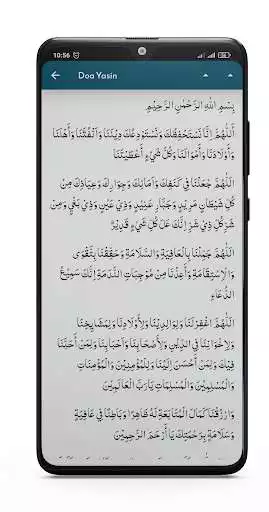 10:56
Doa Yasin
بِسْمِ اللهِ الرَّحْمٰنِ الرَّحِيْمِ
اَللّٰهُمَّ اِنَّا نَسْتَحْفِظُكَ وَنَسْتَوْدِعُكَ دِيْنَنَا وَاَنْفُسَنَا وَاَهْلَنَا
وَاَوْلَادَنَا وَاَمْوَالَنَا وَكُلَّ شَيْءٍ اَعْطَيْتَنَا
اَللّٰهُمَّ جْعَلْنَا فِيْ كَنَفِكَ وَاَمَانِكَ وَجِوَارِكَ وَعِيَاذِكَ مِنْ
كُلِّ شَيْطَانٍ مَرِيْدٍ وَجَبَّارٍ عَنِيْدٍ وَذِيْ عَيْنٍ وَذِيْ بَغْيٍ وَمِنْ
شَرِّ كُلِّ ذِيْ شَرٍّ اِنَّكَ عَلٰ كُلِّ شَيْءٍ قَدِيْرٌ
اَللّٰهُمَّ جَمِّلْنَا بِالْعَافِيَةِ وَالسَّلَامَةِ وَحَقِّقْنَا بِتَّقْوٰى
وَالْاِسْتِقَامَةِ وَاَعِذْنَا مِنْ مُوْجِبَاتِ النَّدَمَةِ اِنَّكَ سَمِيْعُ
الدُّعَاءِ
اَللّٰهُمَّ اغْفِرْلَنَا وَلِوَالِدِيْنَا وَلِاَوْلَادِنَا وَلِمَشَايِخِنَا
وَلِاِخْوَانِنَا فِي الدِّيْنِ وَلِاَصْحَابِنَا وَاَحْبَابِنَا وَلِمَنْ اَحَبَّنَا
فِيْكَ وَلِمَنْ اَحْسَنَ اِلَيْنَا وَلِلْمُؤْمِنِيْنَ وَالْمُؤْمِنَاتِ
وَالْمُسْلِمِيْنَ وَالْمُسْلِمَاتِ يَارَبَّ الْعَالَمِيْنَ
وَارْزُقْنَا كَمَالَ الْمُتَابَعَةِ لَهُ ظَاهِرًا وَبَاطِنًا فِيْ عَافِيَةٍ
وَسَلَامَةٍ بِرَحْمَتِكَ يَا اَرْحَمَ الرَّحِمِيْنَ